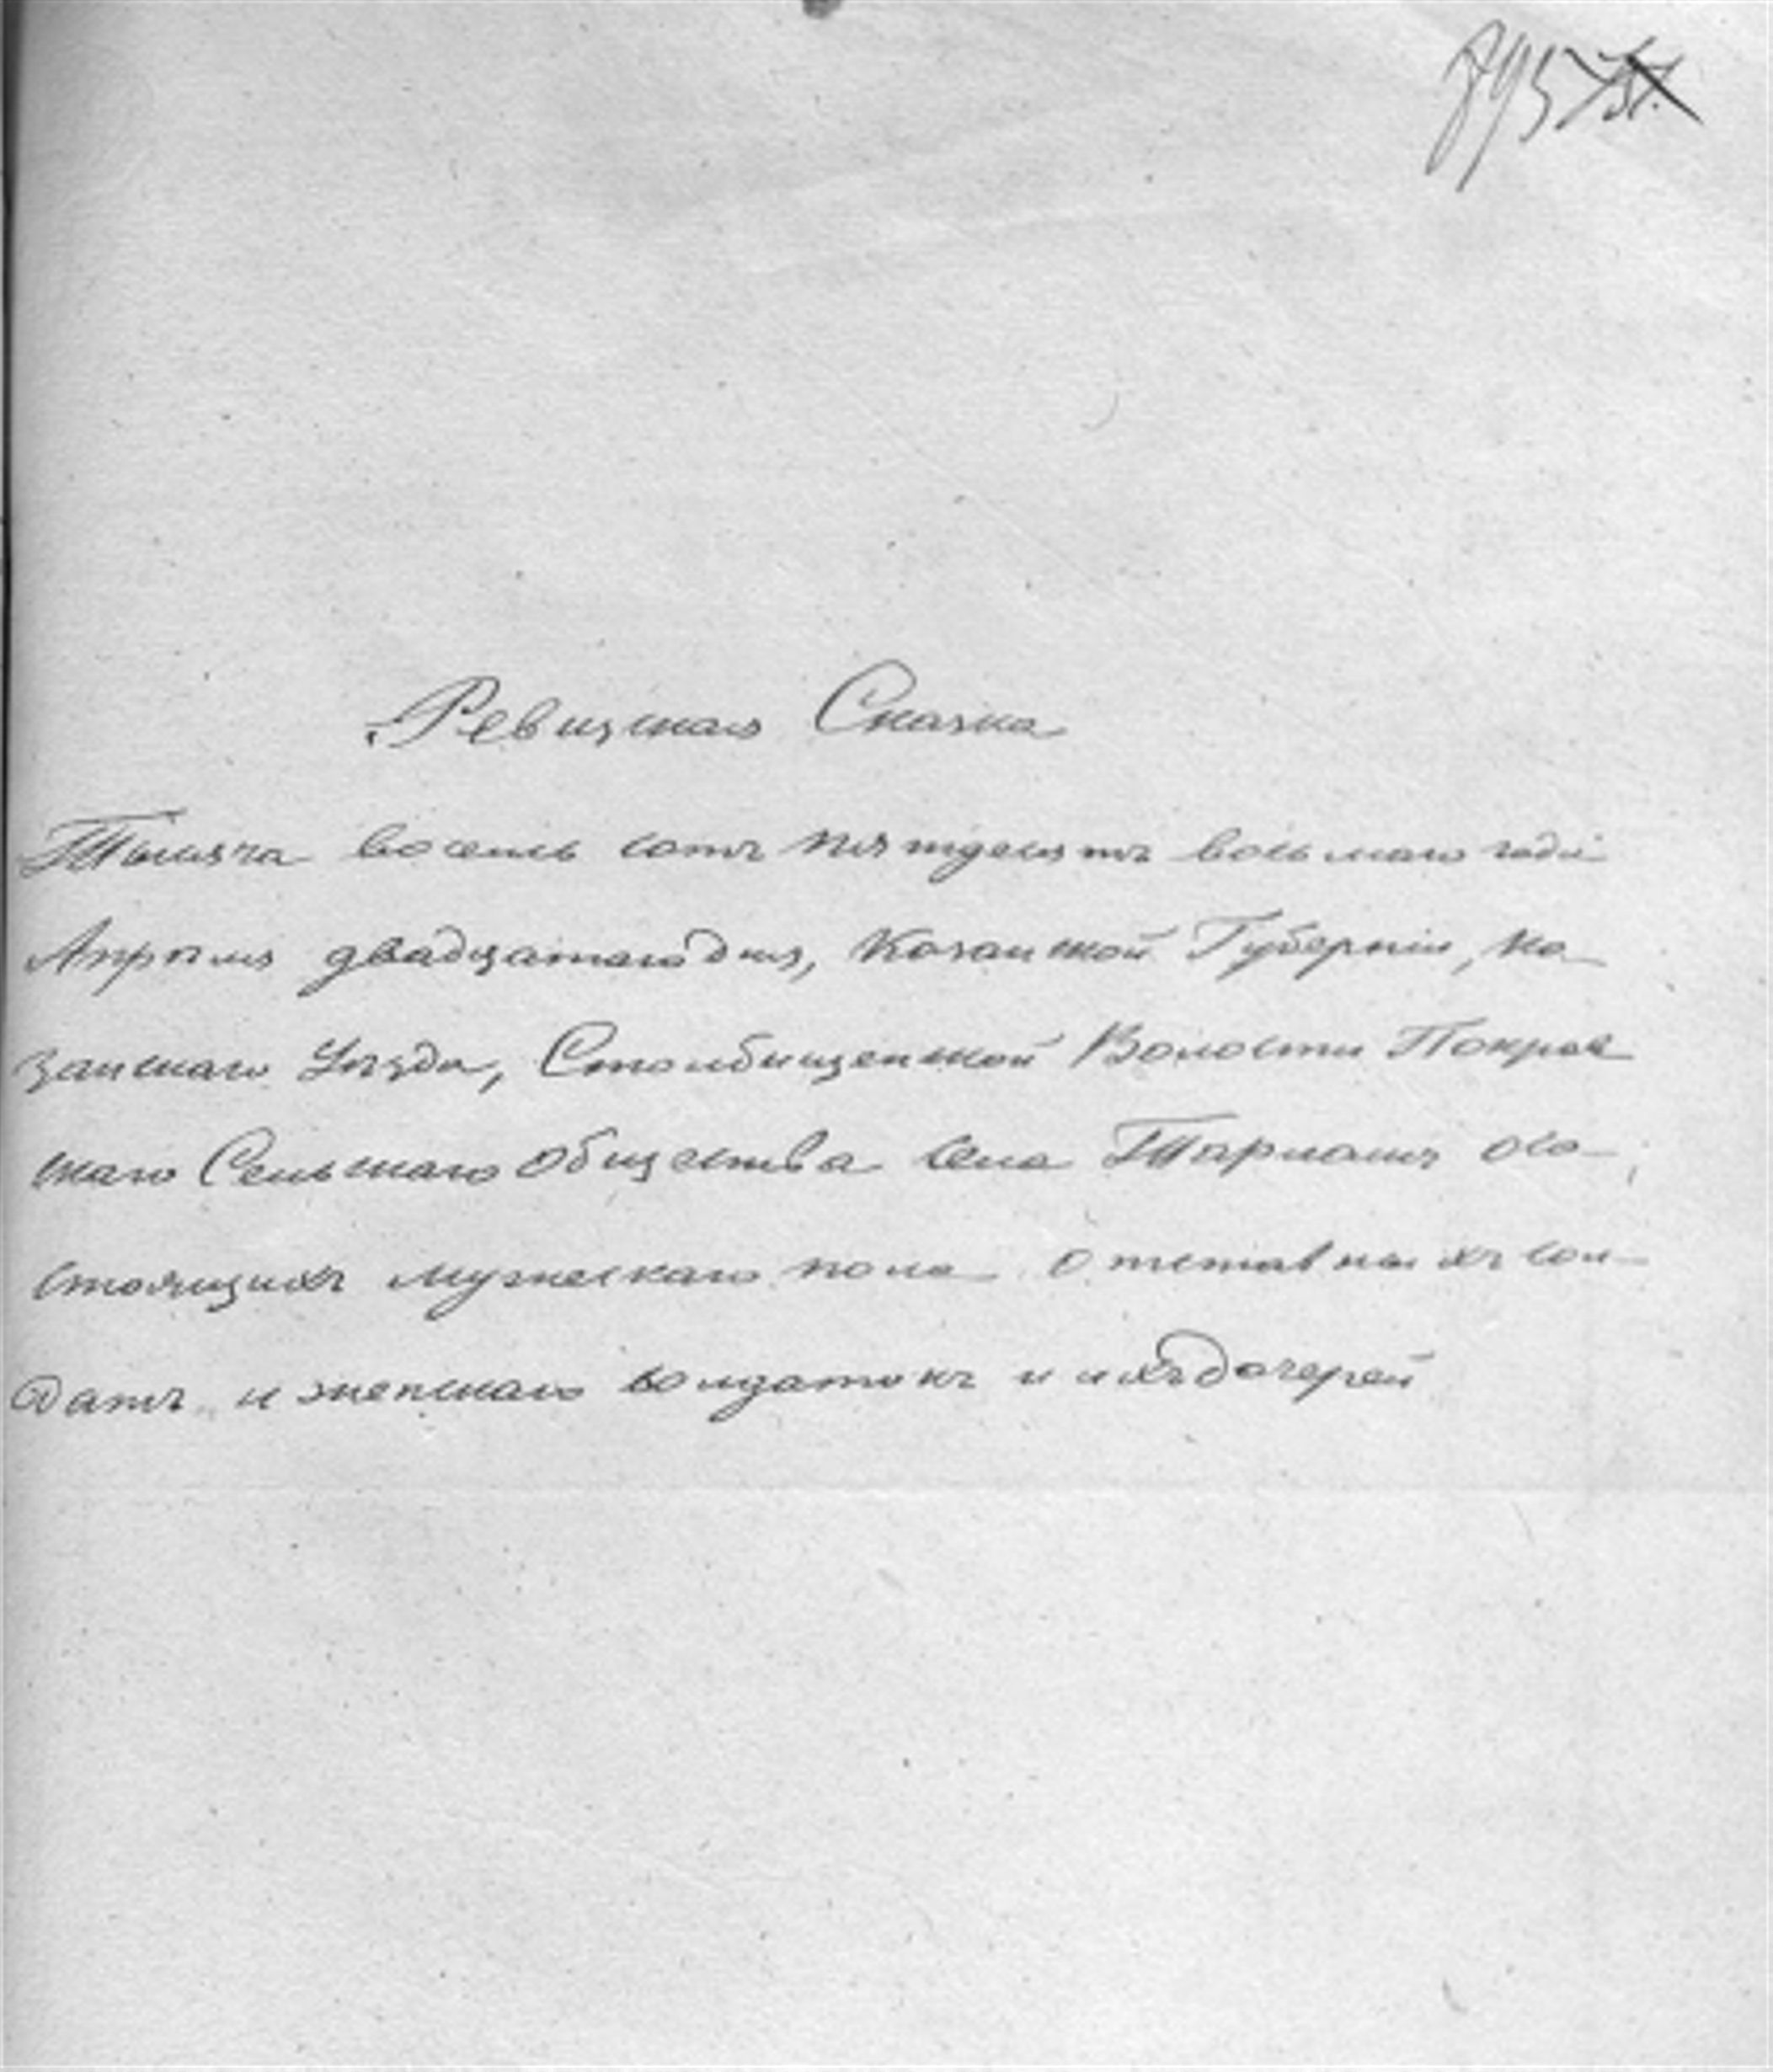 895
Ревизская Сказка
Тысяча восемь сотъ пятьдесятъ восьмаго года
Апрѣля двадцатаго дня, Казанской Губерніи, Ка-
занскаго Уѣзда, Столбищенской Волости Покров
скаго Сельскаго Общества села Тарлашъ о со-
стоящихъ мужескаго пола отставныхъ сол-
датъ и женскаго солдатокъ и ихъ дочерей